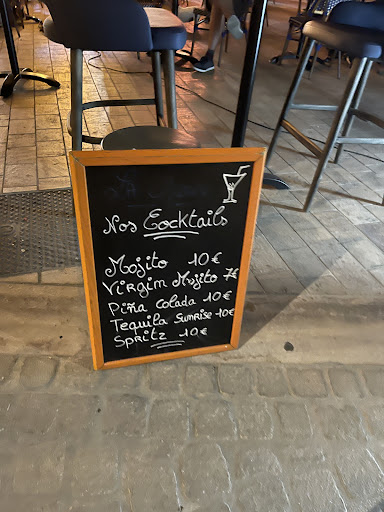 Nos Cocktails
Mojito 10€
Virgin Mojito 7€
Piña Colada 10€
Tequila Sunrise 10€
Spritz 10€